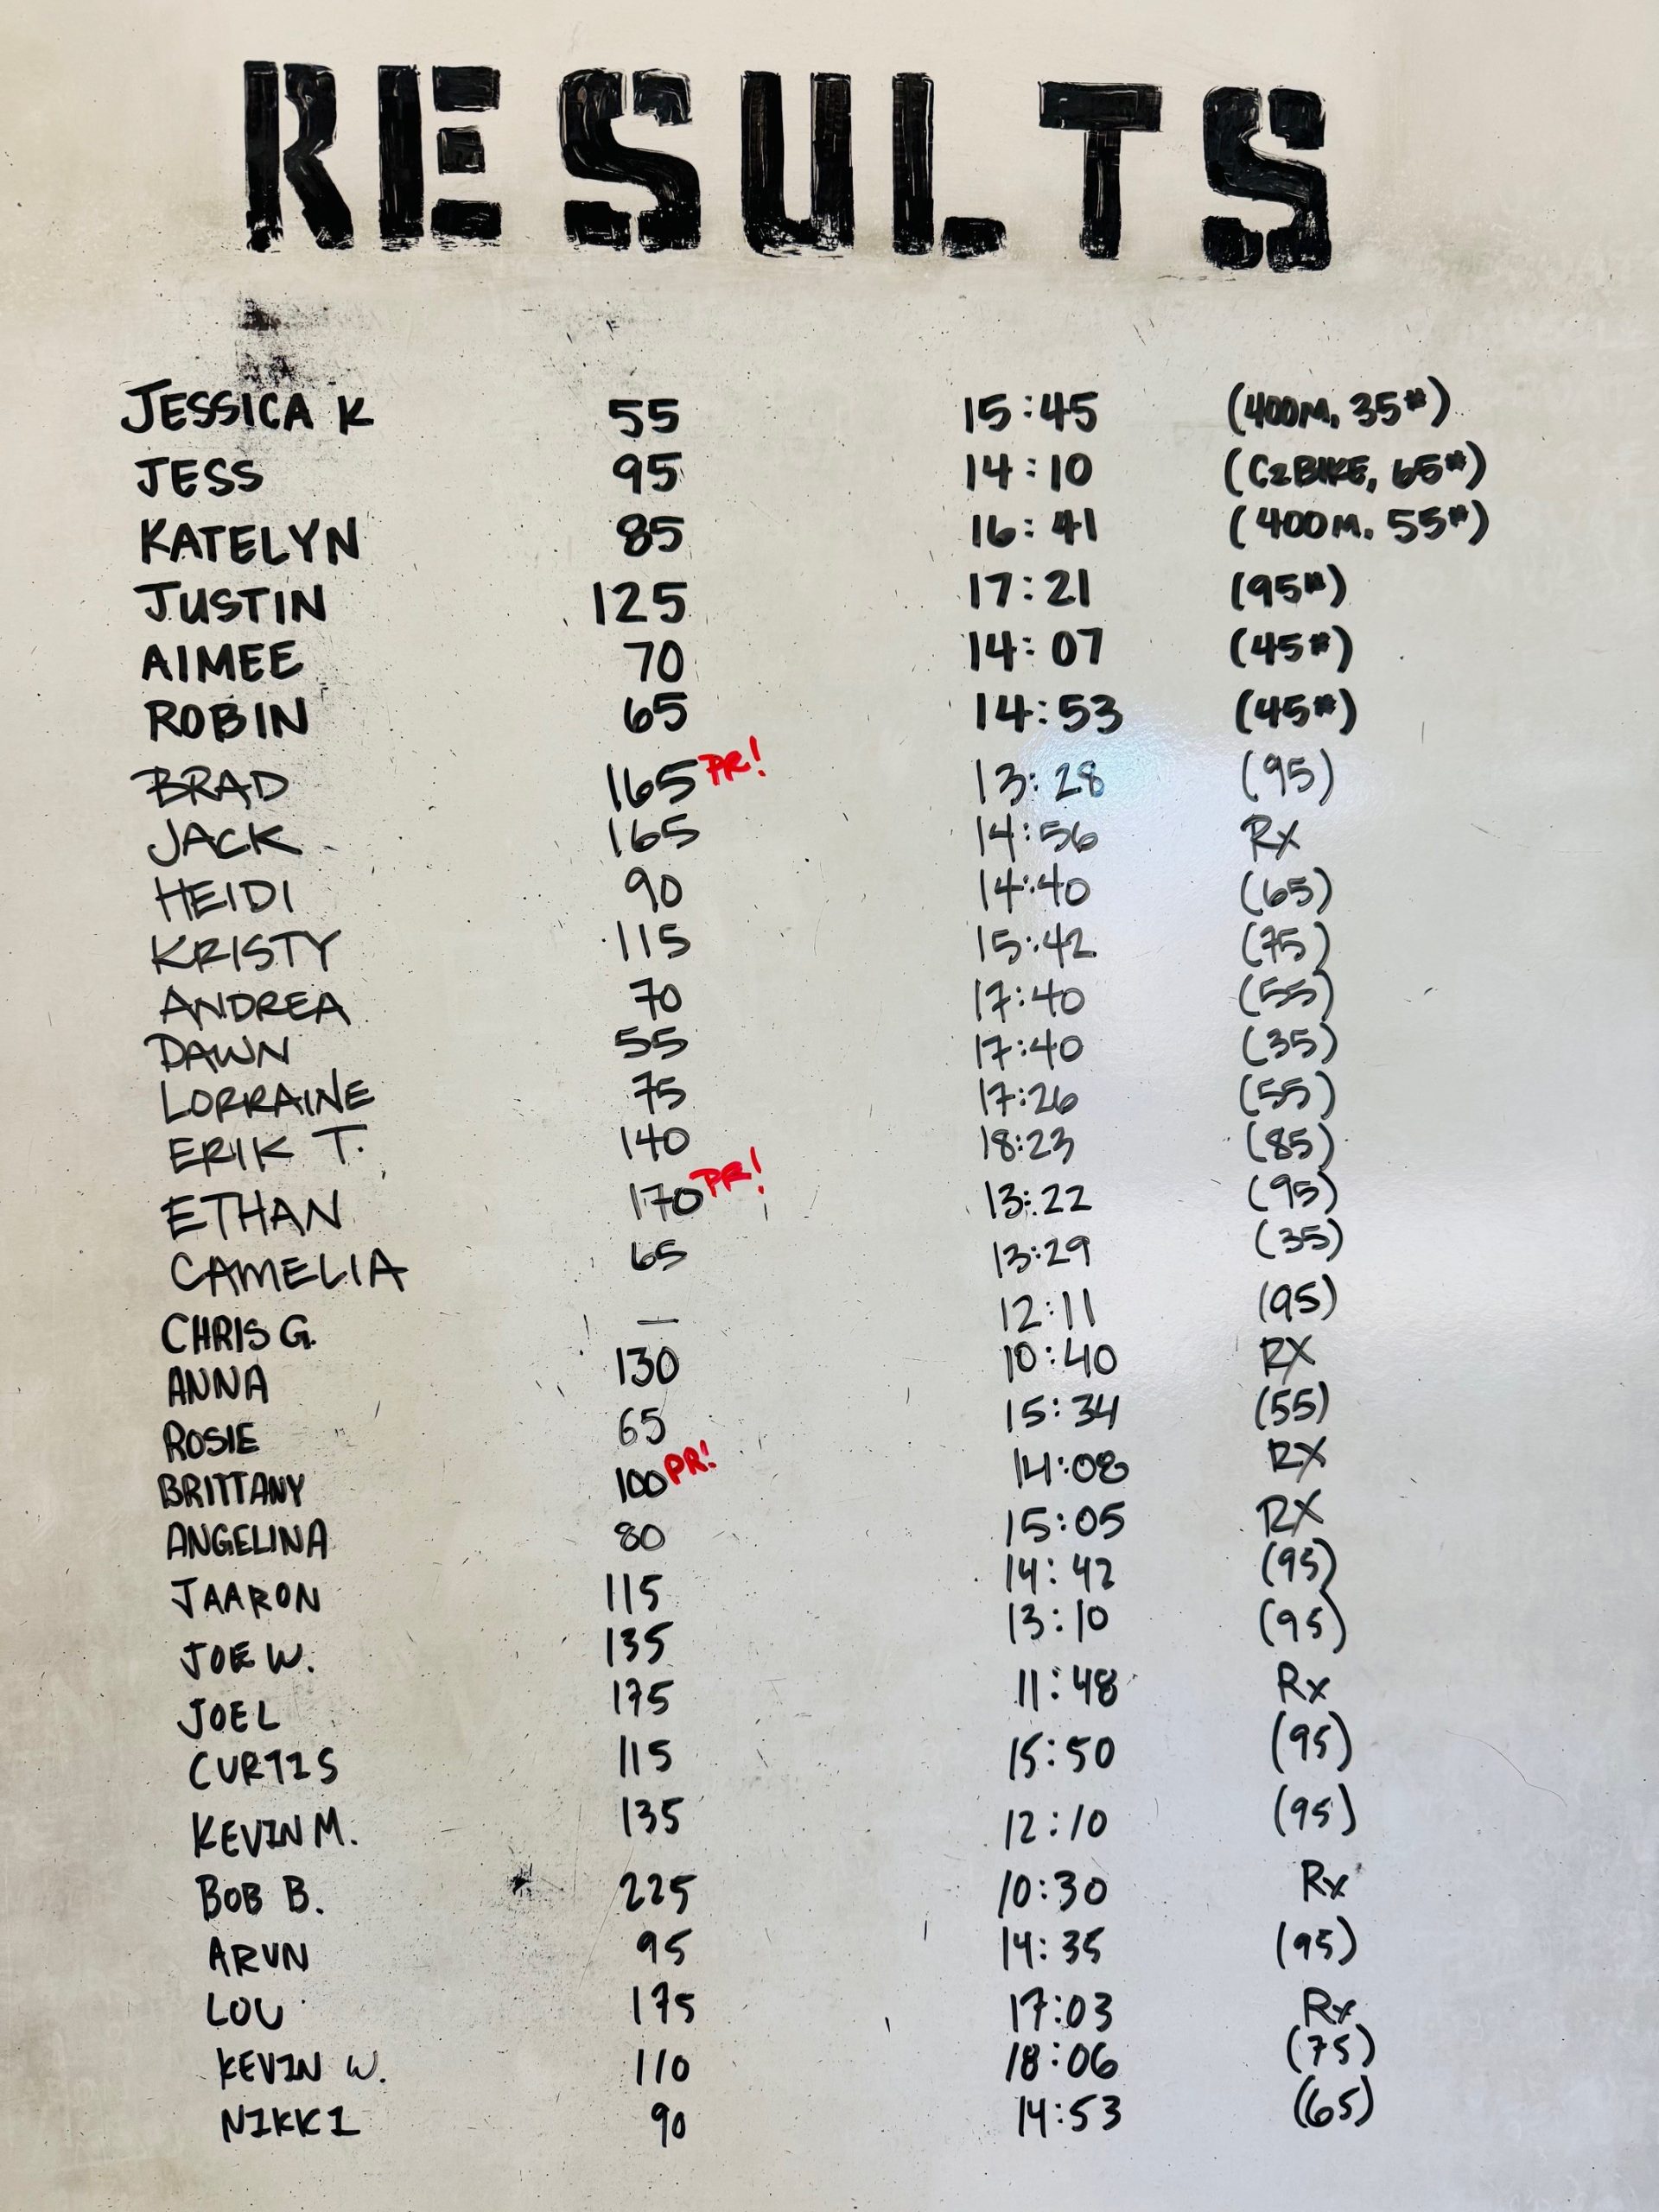 RESULTS
JESSICA K 55 15:45 (400M, 35#)
JESS 95 14:10 (C2BIKE, 65#)
KATELYN 85 16:41 (400M, 55#)
JUSTIN 125 17:21 (95#)
AIMEE 70 14:07 (45#)
ROBIN 65 14:53 (45#)
BRAD 165 PR! 13:28 (95)
JACK 165 14:56 Rx
HEIDI 90 14:40 (65)
KRISTY 115 15:42 (75)
ANDREA 70 17:40 (55)
DAWN 55 17:40 (35)
LORRAINE 75 17:26 (55)
ERIK T. 140 18:23 (85)
ETHAN 170 PR! 13:22 (95)
CAMELIA 65 13:29 (35)
CHRIS G. — 12:11 (95)
ANNA 130 10:40 RX
ROSIE 65 15:34 (55)
BRITTANY 100 PR! 14:08 RX
ANGELINA 80 15:05 RX
JAARON 115 14:42 (95)
JOE W. 135 13:10 (95)
JOEL 175 11:48 Rx
CURTIS 115 15:50 (95)
KEVIN M. 135 12:10 (95)
BOB B. 225 10:30 Rx
ARUN 95 14:35 (95)
LOU 175 17:03 Rx
KEVIN W. 110 18:06 (75)
NIKKI 90 14:53 (65)